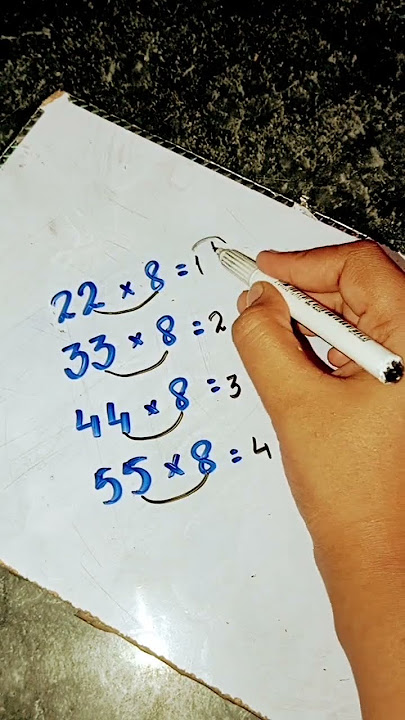 22 × 8 = 1
33 × 8 = 2
44 × 8 = 3
55 × 8 = 4